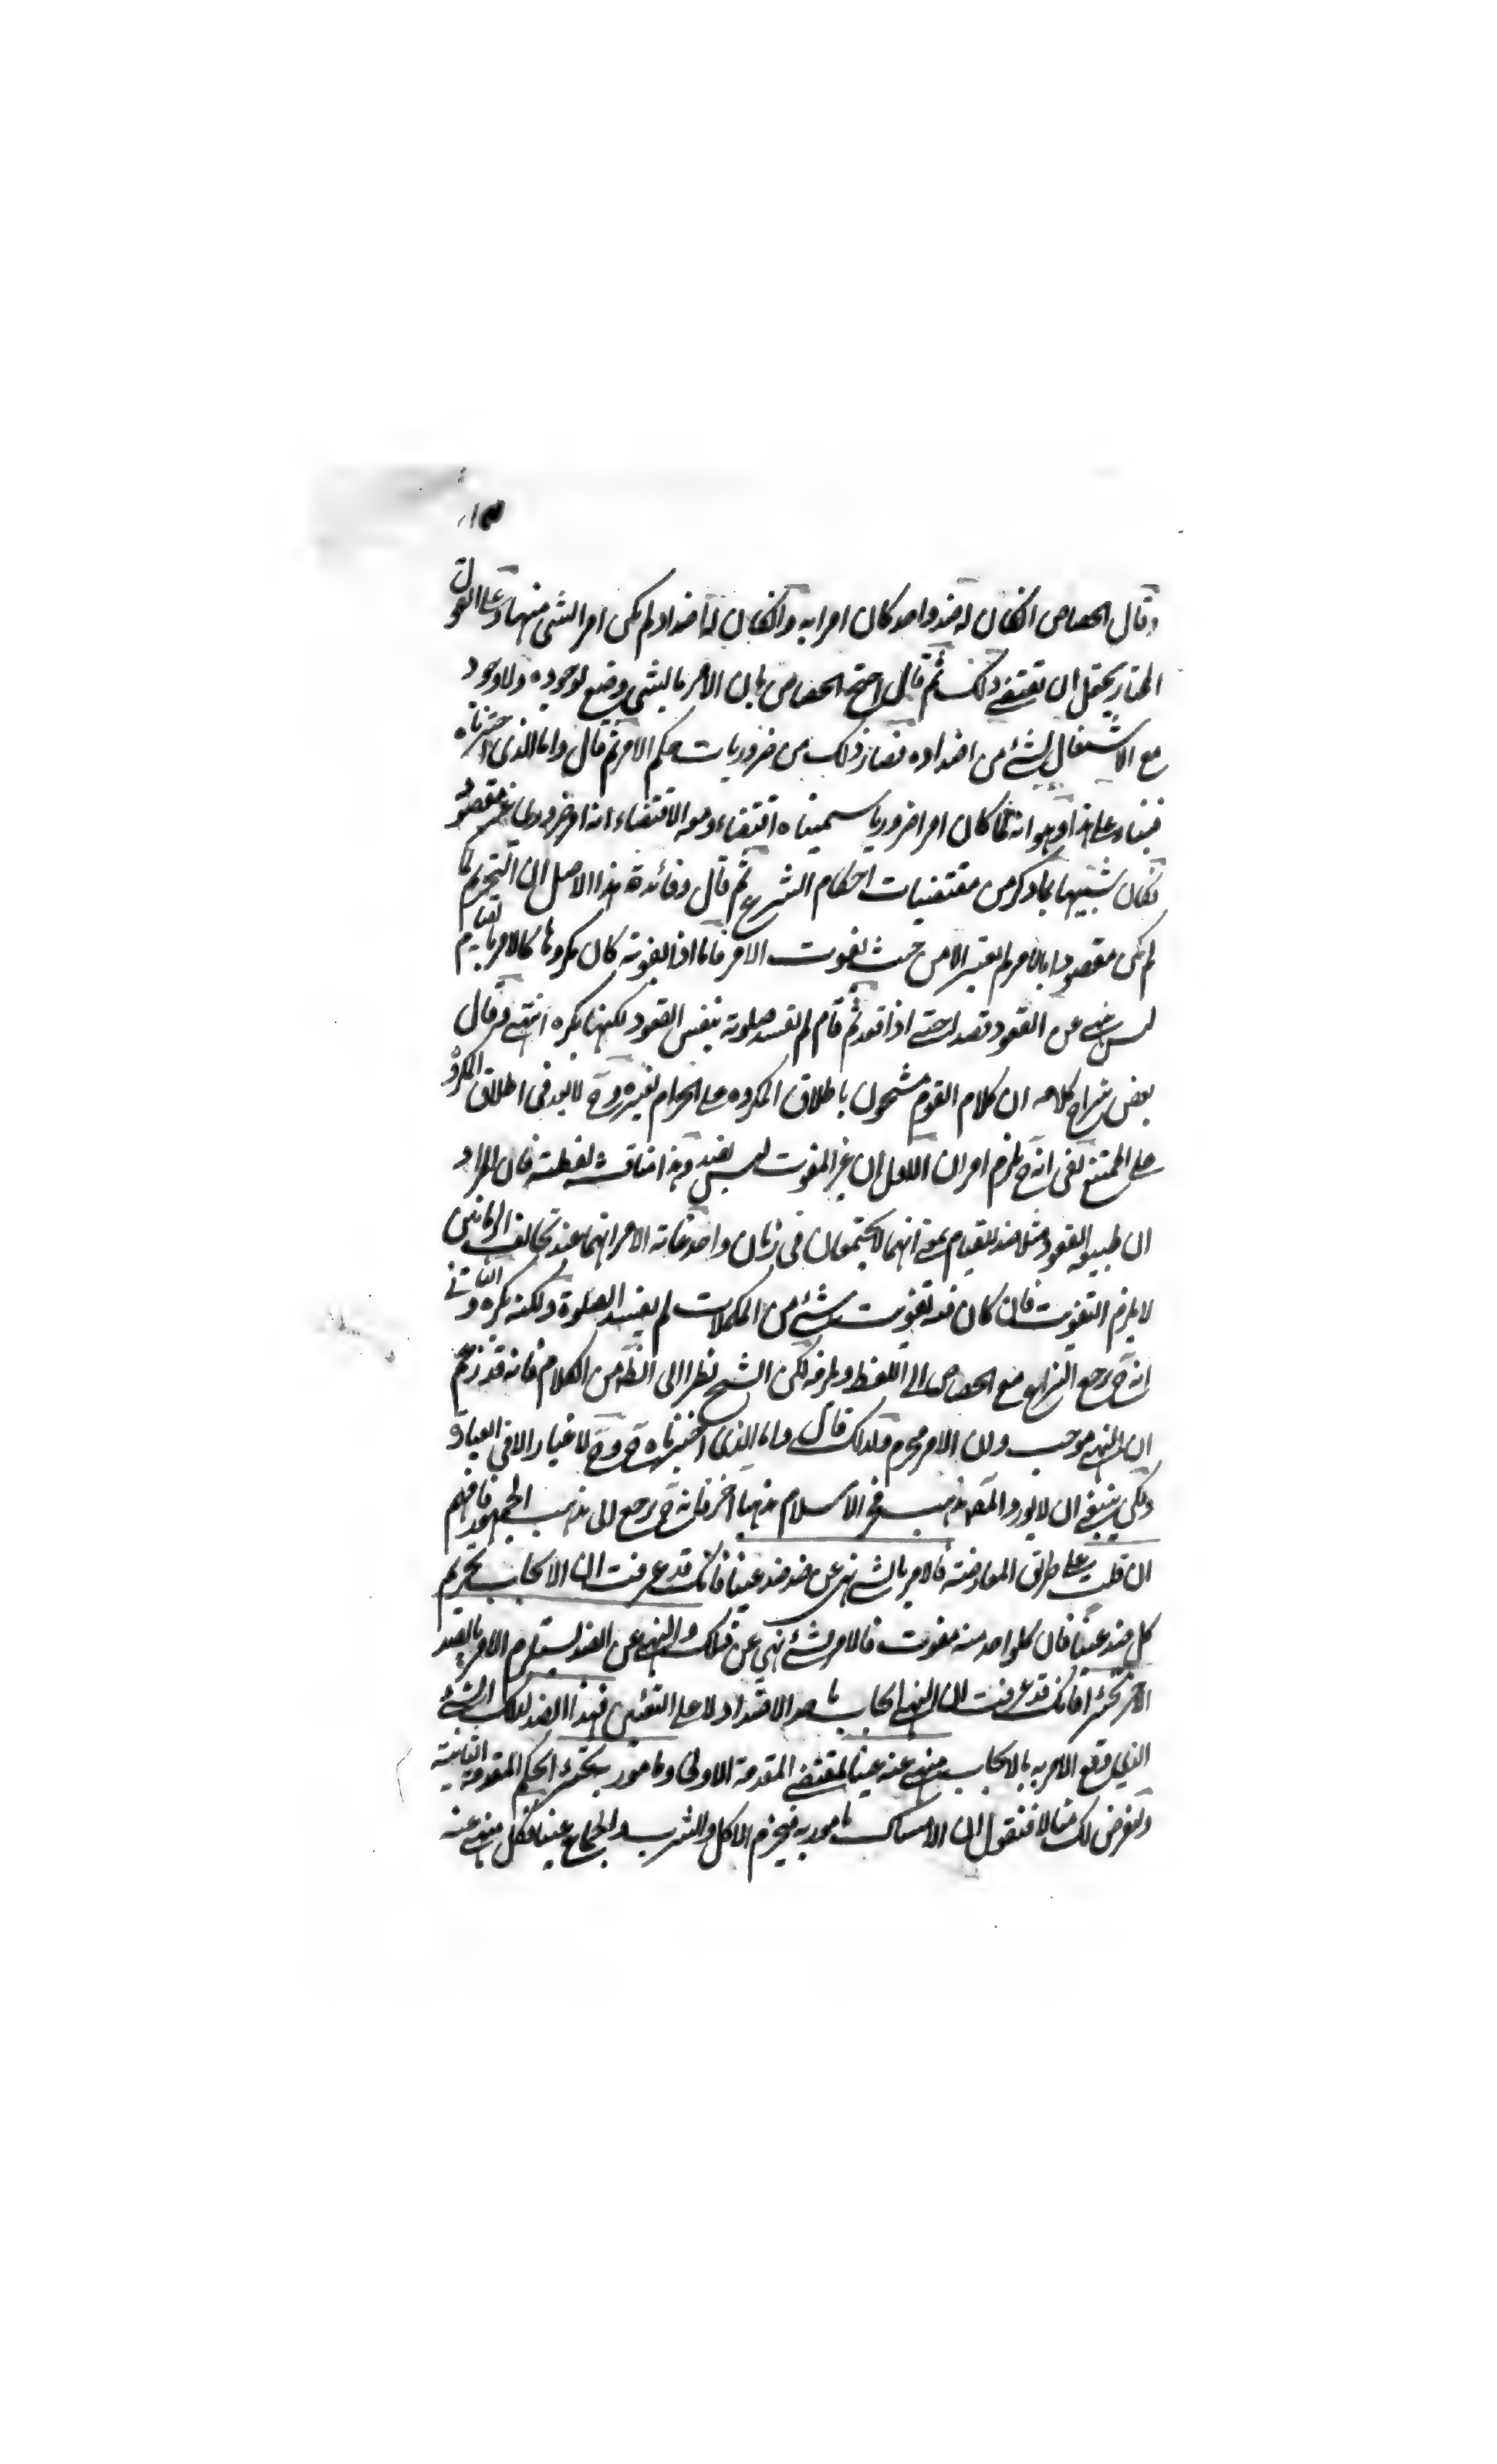 وقال الجصاص ان كان له ضد واحد كان امرا به وان كان له اضداد لم يكن امرا لشئ منها وعلى القول
المختار يحتمل ان يقتضى ذلك ثم قال احتج الجصاص بان الامر بالشئ وضع لوجوده ولا وجود
مع الاشتغال بشئ من اضداده فصار ذلك من ضروريات حكم الامر ثم قال واما الذى اخترناه
فبناء على هذا وهو انه لما كان امرا ضروريا سميناه اقتضاء ومعنى الاقتضاء انه ضرورى غير مقصود
فكان شبيها بما ذكر من مقتضيات احكام الشرع ثم قال وفائدة هذا الاصل ان التحريم لما
لم يكن مقصودا بالامر لم يعتبر الا من حيث يفوت الامر فاما اذا لم يفوته كان مكروها كالامر بالقيام
ليس بنهى عن القعود قصدا حتى اذا قعد ثم قام لم تفسد صلوته بنفس القعود لكنها يكره انتهى وقال
بعض شراح كلامه ان كلام القوم مشحون باطلاق المكروه على الحرام لغيره وح لا بعد فى اطلاق المكروه
على الممتنع بقى انه ح يلزم امران الاول ان غير المفوت ليس بضد وهذا مناقشة لفظية فان المراد
ان طبيعة القعود مثلا ضد للقيام بمعنى انهما لا يجتمعان فى زمان واحد غاية الامر انهما عند تخالف الزمانين
لا يلزم التفويت فان كان فيه تفويت شئ من المكملات لم يفسد الصلوة ولكنه يكره والثانى
انه ح يرجع النزاع مع الجصاص الى اللفظ وطرفه لكن الشيخ نظرا الى الظاهر من الكلام فانه قد زعم
ان النهى موجب وان الامر محرم فلذلك قال واما الذى اخترناه ح وح لا غبار الا فى العبارة
ولكن ينبغى ان لا يورد المصنف مذهب فخر الاسلام مذهبا اخر فانه ح يرجع الى مذهب الجمهور فافهم
ان قلت على طريق المعارضة فالامر بالشئ نهى عن ضد ضد عينا فانك قد عرفت ان الايجاب تحريم
كل ضد عينا فان كل واحد منه مفوت فالامر بشئ نهى عن ذلك والنهى عن الضد يستلزم الامر بالضد
الآخر تخييرا فانك قد عرفت ان النهى ايجاب باحد الاضداد لا على التعيين فهذا الضد لذلك الشئ
الذى وقع الامر به بالايجاب منهى عنه عينا لمقتضى المقدمة الاولى ومامور به تخييرا بحكم المقدمة الثانية
ولنفرض لك مثالا فنقول ان الامساك مامور به فيحرم الاكل والشرب والجماع عينا فكل منهى عنه